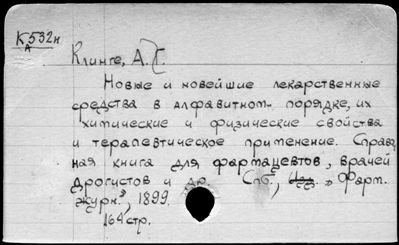 К 532н
А
Клинге, А. Г.
Новые и новейшие лекарственные
средства в алфавитном порядке, их
химические и физические свойства
и терапевтическое применение. Справоч
ная книга для фармацевтов, врачей
дрогистов и др. Спб., Изд. "Фарм.
журн.", 1899.
164 стр.